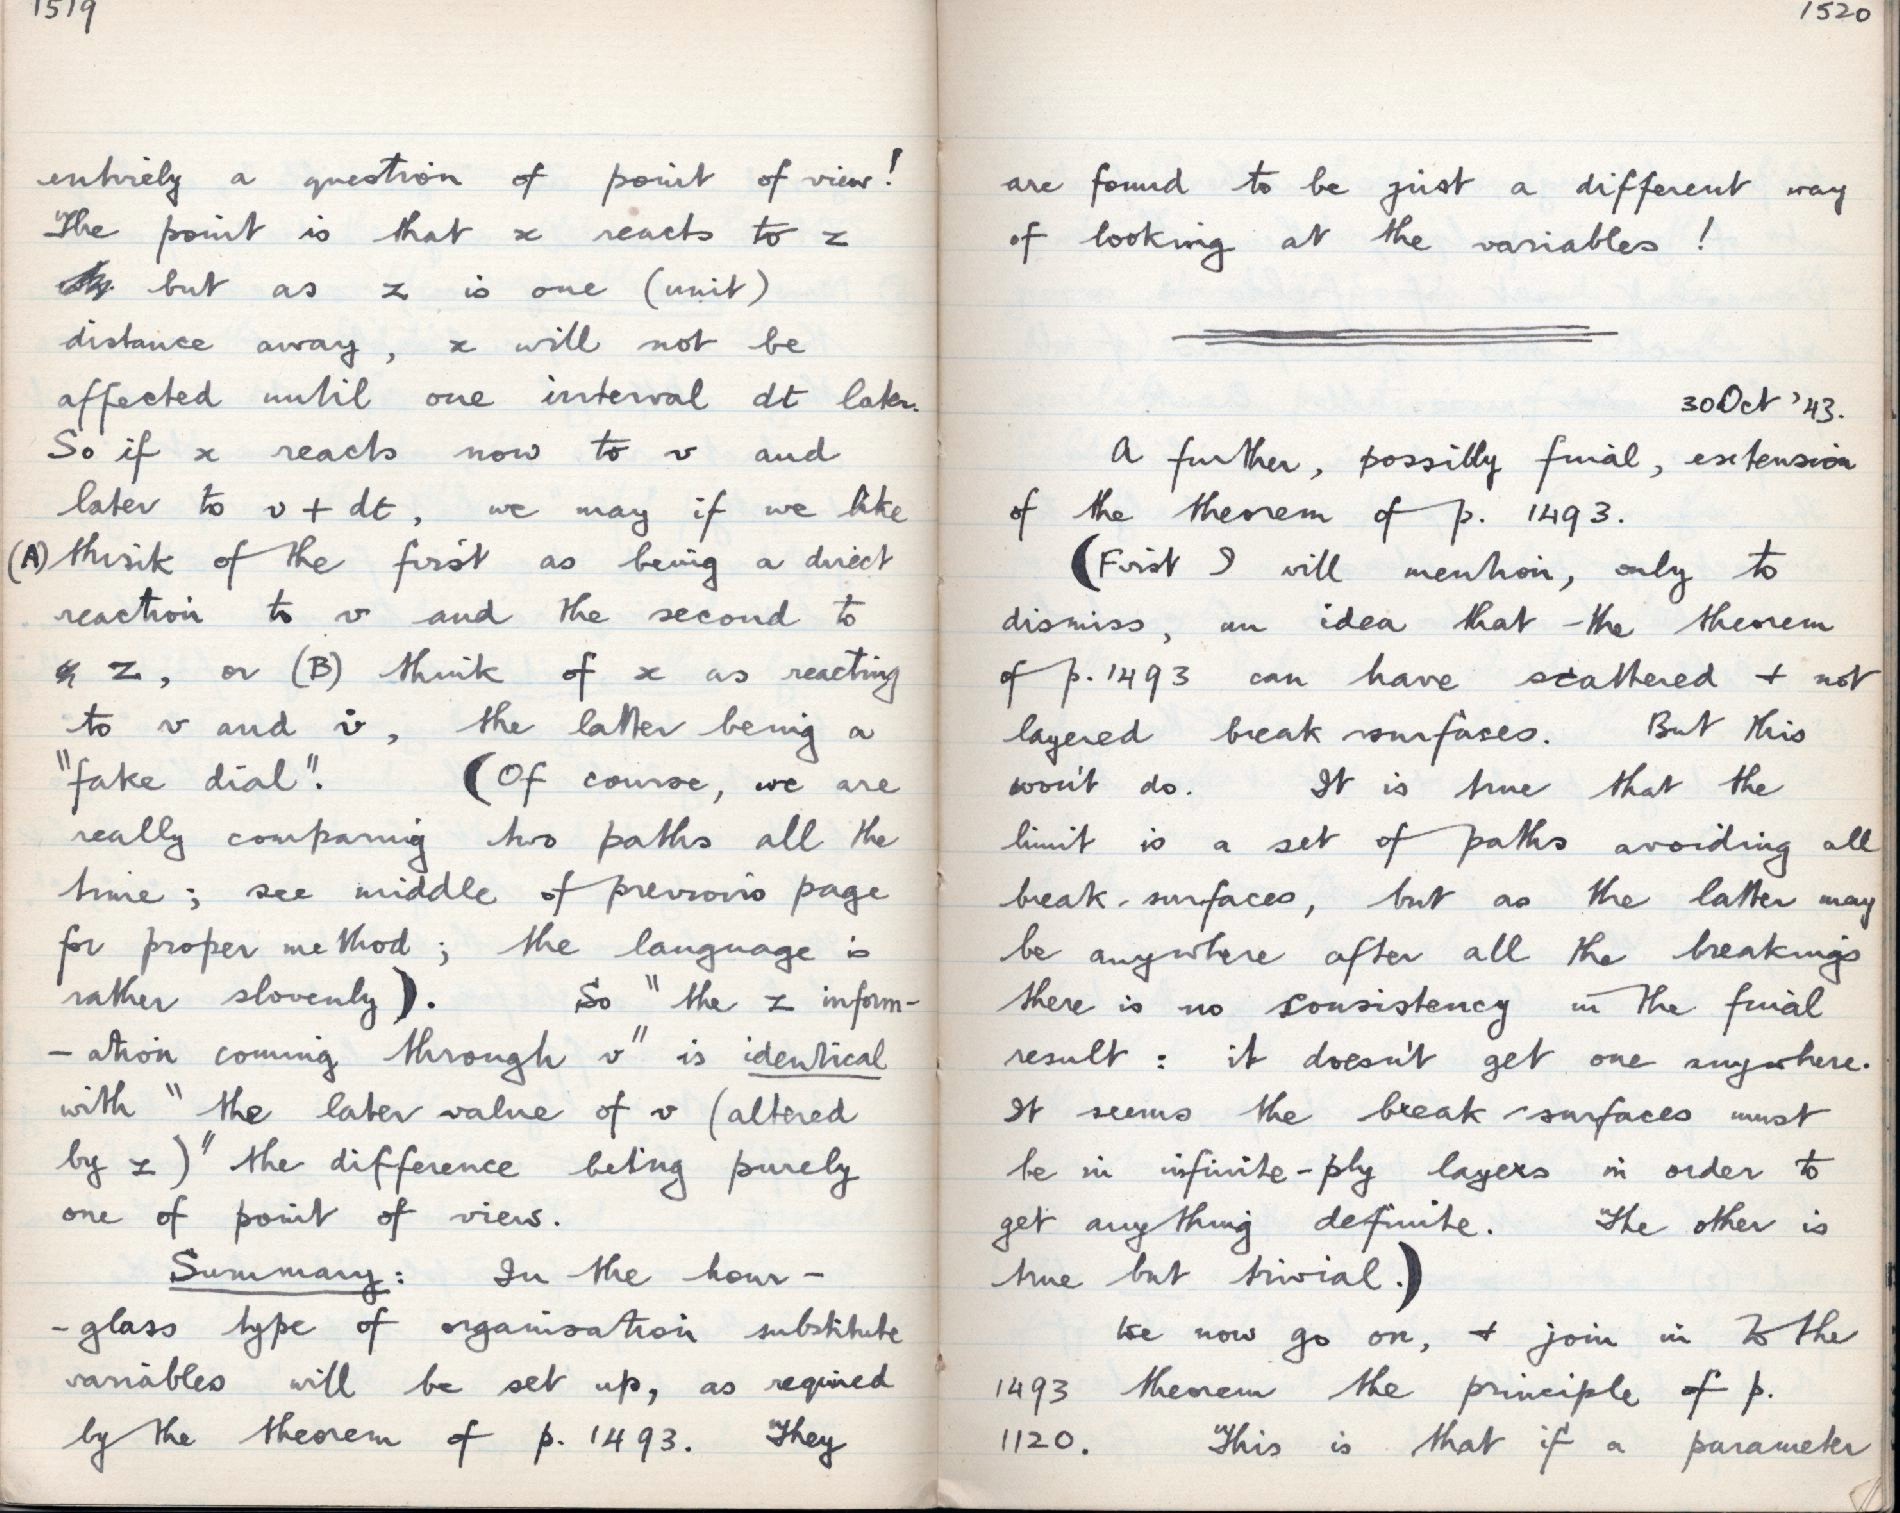 1519
entirely a question of point of view!
The point is that x reacts to z
but as z is one (unit)
distance away, x will not be
affected until one interval dt later.
So if x reacts now to v and
later to v + dt, we may if we like
(A) think of the first as being a direct
reaction to v and the second to
z, or (B) think of x as reacting
to v and v̇, the latter being a
"fake dial". (Of course, we are
really comparing two paths all the
time; see middle of previous page
for proper method; the language is
rather slovenly). So "the z inform-
-ation coming through v" is identical
with "the later value of v (altered
by z)" the difference being purely
one of point of view.
Summary: In the hour-
-glass type of organisation substitute
variables will be set up, as required
by the theorem of p. 1493. They
1520
are found to be just a different way
of looking at the variables!
30 Oct '43.
A further, possibly final, extension
of the theorem of p. 1493.
(First I will mention, only to
dismiss, an idea that the theorem
of p. 1493 can have scattered + not
layered break-surfaces. But this
won't do. It is true that the
limit is a set of paths avoiding all
break-surfaces, but as the latter may
be anywhere after all the breakings
there is no consistency in the final
result: it doesn't get one anywhere.
It seems the break-surfaces must
be in infinite-ply layers in order to
get anything definite. The other is
true but trivial.)
We now go on, + join in to the
1493 theorem the principle of p.
1120. This is that if a parameter